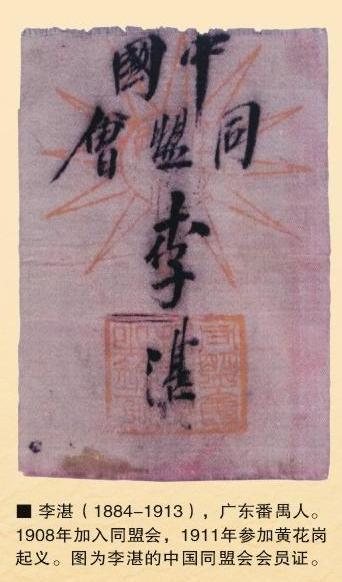 中國
同盟會
李湛
■ 李湛（1884-1913），广东番禺人。
1908年加入同盟会，1911年参加黄花岗
起义。图为李湛的中国同盟会会员证。